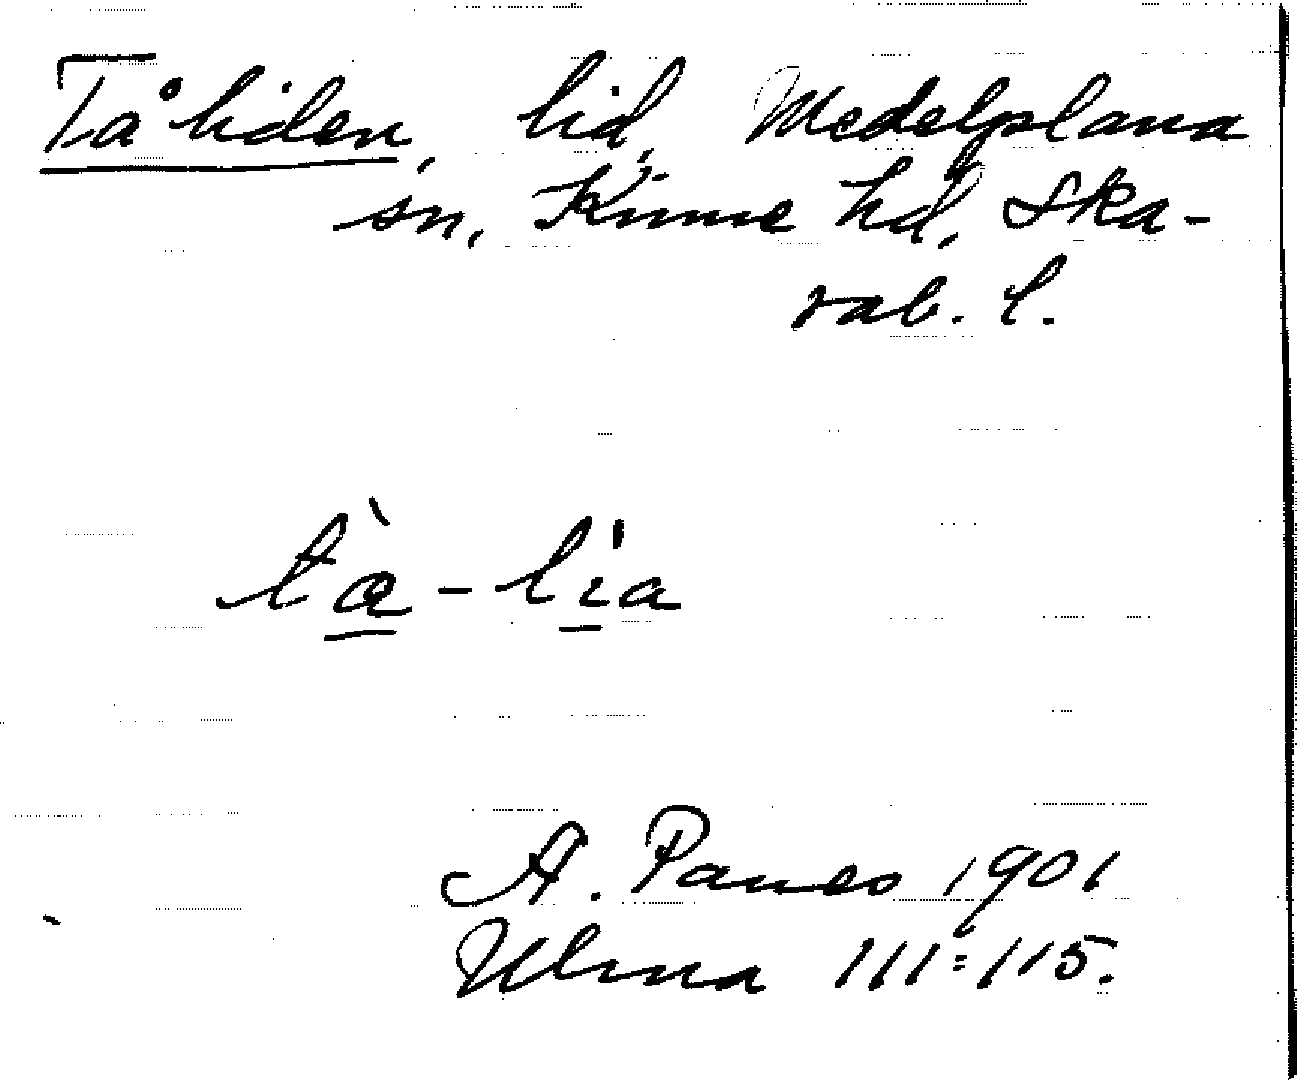 Tåliden, lid, Medelplana
sn, Kinne hd, Ska-
rab. l.
tà̱-lı̱a
A. Paues 1901
Ulma 111:115.